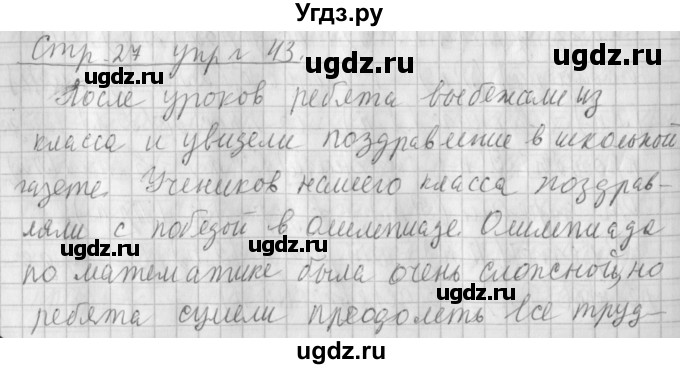 Угдз.ру
Стр 27 упр г 43.
После уроков ребята выбежали из
класса и увидели поздравление в школьной
газете. Учеников нашего класса поздрав-
ляли с победой в олимпиаде. Олимпиада
по математике была очень сложной, но
ребята сумели преодолеть все труд-
ugdz.ru ugdz.ru
ugdz.ru ugdz.ru
ugdz.ru ugdz.ru
ugdz.ru ugdz.ru
ugdz.ru ugdz.ru
ugdz.ru